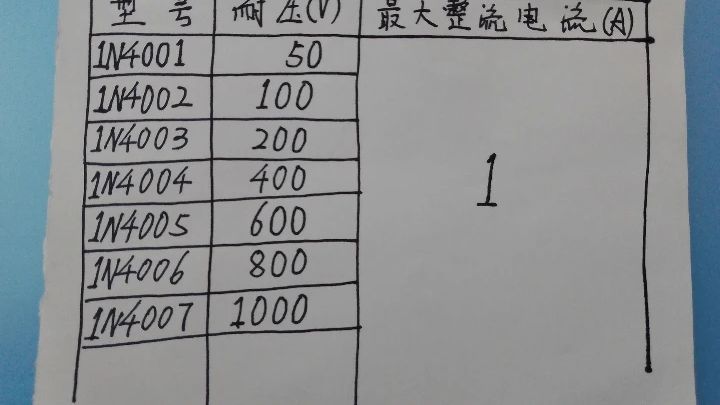 型号 耐压(V) 最大整流电流(A)
1N4001 50
1N4002 100
1N4003 200
1N4004 400
1
1N4005 600
1N4006 800
1N4007 1000